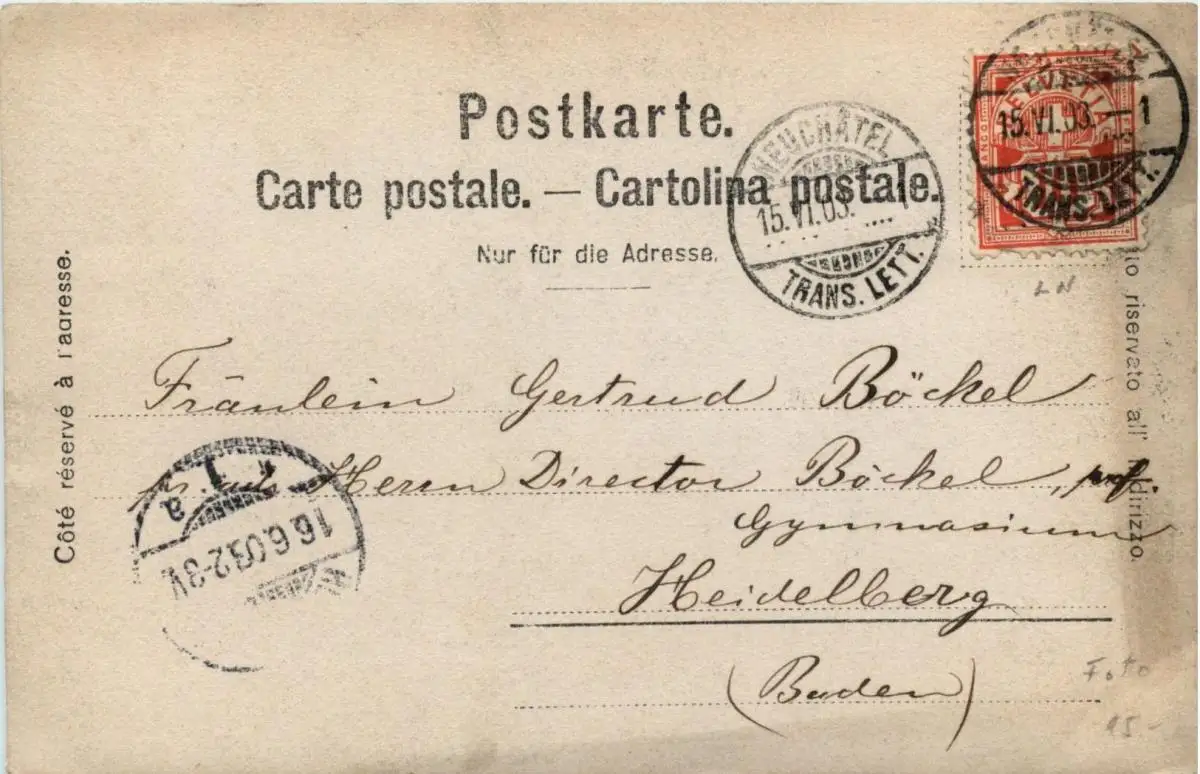 Postkarte.
Carte postale. — Cartolina postale.
Nur für die Adresse.
Côté réservé à l'adresse.
riservato all' indirizzo.
HELVETIA
15.VI.03.—1
TRANS. LETT.
NEUCHÂTEL
15.VI.03. 1
TRANS. LETT.
LN
Fräulein Gertrud Böckel
Herrn Director Böckel,
Gymnasium
Heidelberg
(Baden)
16.6.03.2-3V.
a
Foto
15-